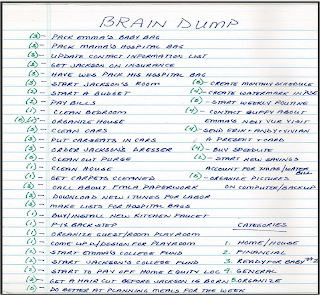 BRAIN DUMP
(3)- PACK EMMA'S BABY BAG
(3)- PACK MAMA'S HOSPITAL BAG
(5)- UPDATE CONTACT INFORMATION LIST
(2)- GET JACKSON ON INSURANCE
(3)- HAVE WES PACK HIS HOSPITAL BAG
(3)- START JACKSON'S ROOM
(2)- START A BUDGET
(2)- PAY BILLS
(1)- CLEAN BEDROOM
ORGANIZE HOUSE
(1)- CLEAN CARS
(3)- PUT CARSEATS IN CARS
(3)- ORDER JACKSON'S DRESSER
CLEAN OUT PURSE
(1)- CLEAN HOUSE
(1)- GET CARPETS CLEANED
CALL ABOUT FMLA PAPERWORK
DOWNLOAD NEW TUNES FOR LABOR
(3)- MAKE LISTS FOR HOSPITAL BAGS
(1)- BUY/INSTALL NEW KITCHEN FAUCET
(1)- FIX BACK STEP
(1)- ORGANIZE GUEST ROOM/PLAYROOM
(1)- COME UP W/DESIGN FOR PLAYROOM
(2)- START EMMA'S COLLEGE FUND
(2)- START JACKSON'S COLLEGE FUND
(2)- START TO PAY OFF HOME EQUITY LOC
GET A HAIR CUT BEFORE JACKSON IS BORN
DO BETTER AT PLANNING MEALS FOR THE WEEK
CREATE MONTHLY SCHEDULE
(4)- CREATE WATERMARK IN PSE
START WEEKLY ROUTINE
(4)- CONTACT GUPPY ABOUT
EMMA'S NEXT YUR VISIT
(4)- SEND ERIK & ANDY+VIVIAN
A PRESENT & CARD
(4)- BUY SPEEDLITE
START NEW SAVINGS
ACCOUNT FOR TAXES/WATER
BILL
ORGANIZE PICTURES
ON COMPUTER/BACKUP
CATEGORIES
1. HOME/HOUSE
2. FINANCIAL
3. READY FOR BABY #2
4. GENERAL
5. ORGANIZE